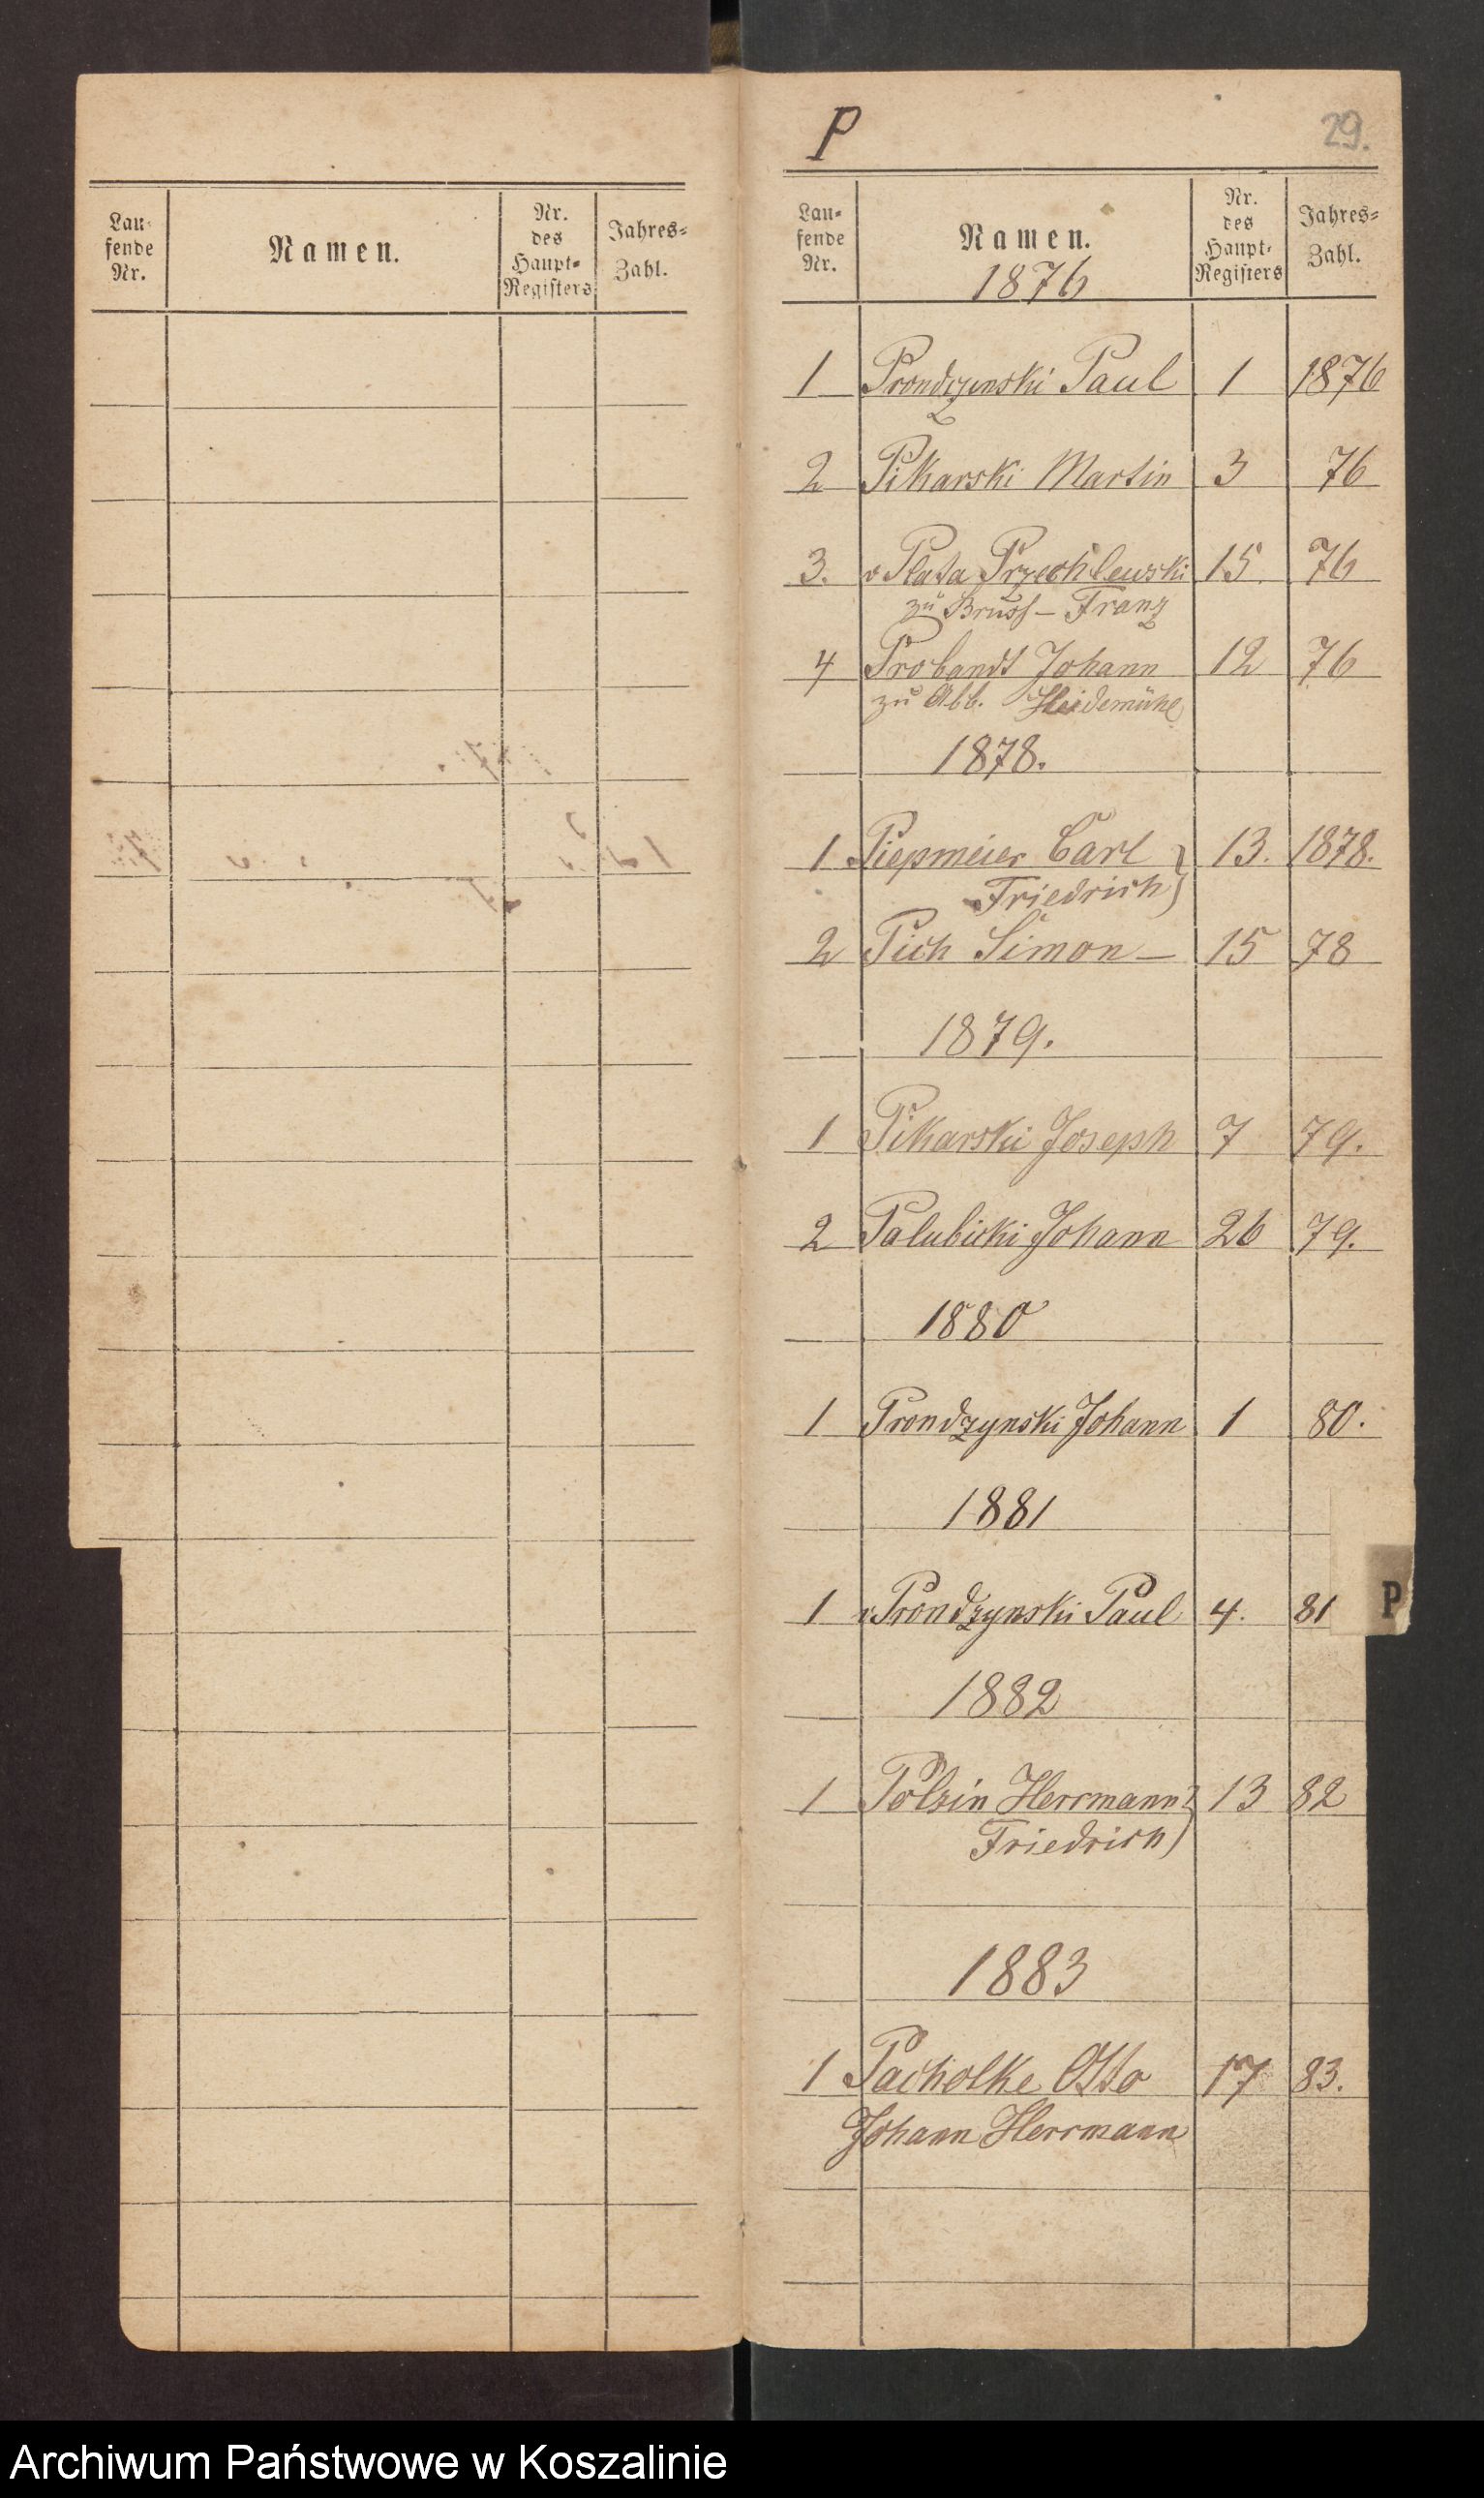 Lau-
fende
Nr.
Namen.
Nr.
des
Haupt-
Registers
Jahres-
Zahl.
P
29.
Lau-
fende
Nr.
Namen.
1876
Nr.
des
Haupt-
Registers
Jahres-
Zahl.
1 Prondzynski Paul 1 1876
2 Pikarski Martin 3 76
3. v Plata Przechlewski 15. 76
zu Bruss - Franz
4 Probandt Johann 12 76
zu Abb. Heidemühl
1878.
1 Piepmeier Carl 13. 1878.
Friedrich
2 Pich Simon - 15 78
1879.
1 Pikarski Joseph 7 79.
2 Palubicki Johann 26 79.
1880
1 Prondzynski Johann 1 80.
1881
1 v. Prondzynski Paul 4. 81
P
1882
1 Polzin Herrmann 13 82
Friedrich
1883
1 Pacholke Otto 17 83.
Johann Herrmann
Archiwum Państwowe w Koszalinie